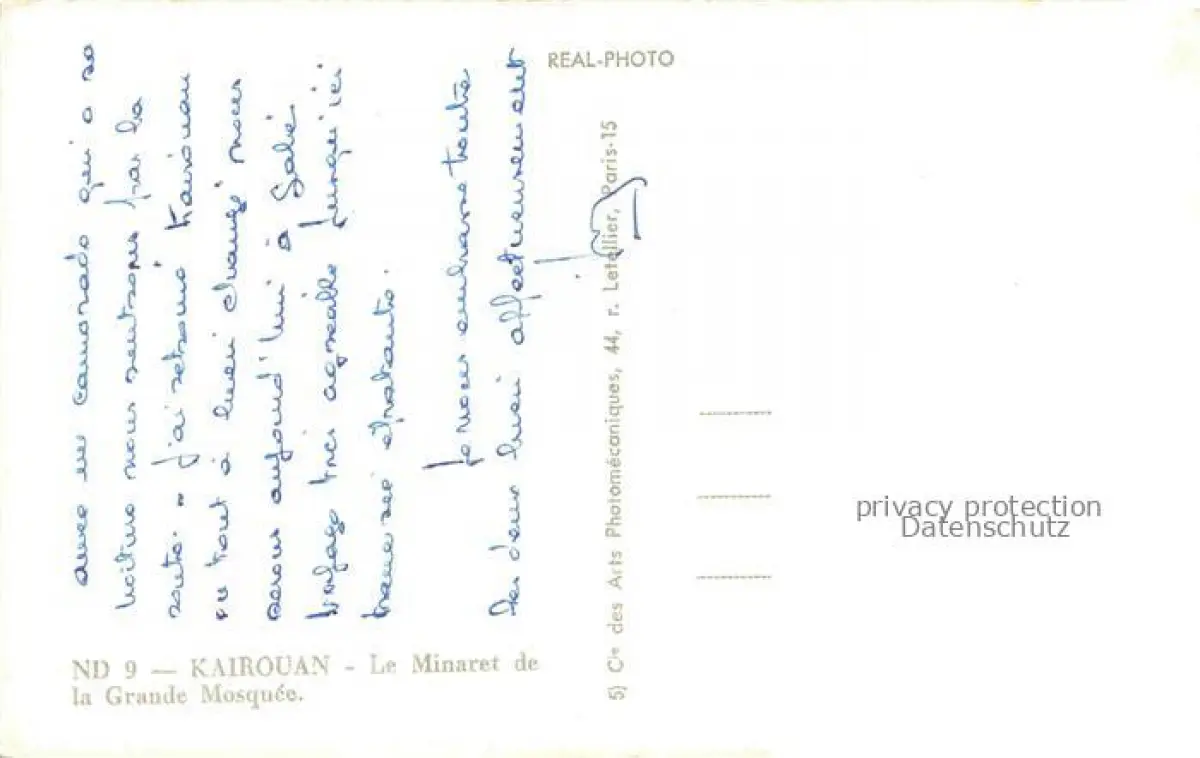 avec un camarade qui a sa
voiture nous rentrons par la
route. J'ai retrouvé Kairouan
en tout à bien changé nous
aujourd'hui à
voyage très agréable jusqu'ici
traversée épatante.
Je vous embrasse toutes
les deux bien affectueusement
REAL-PHOTO
5) Cie des Arts Photomécaniques, 44, r. Letellier, Paris-15
ND 9 — KAIROUAN - Le Minaret de
la Grande Mosquée.
privacy protection
Datenschutz